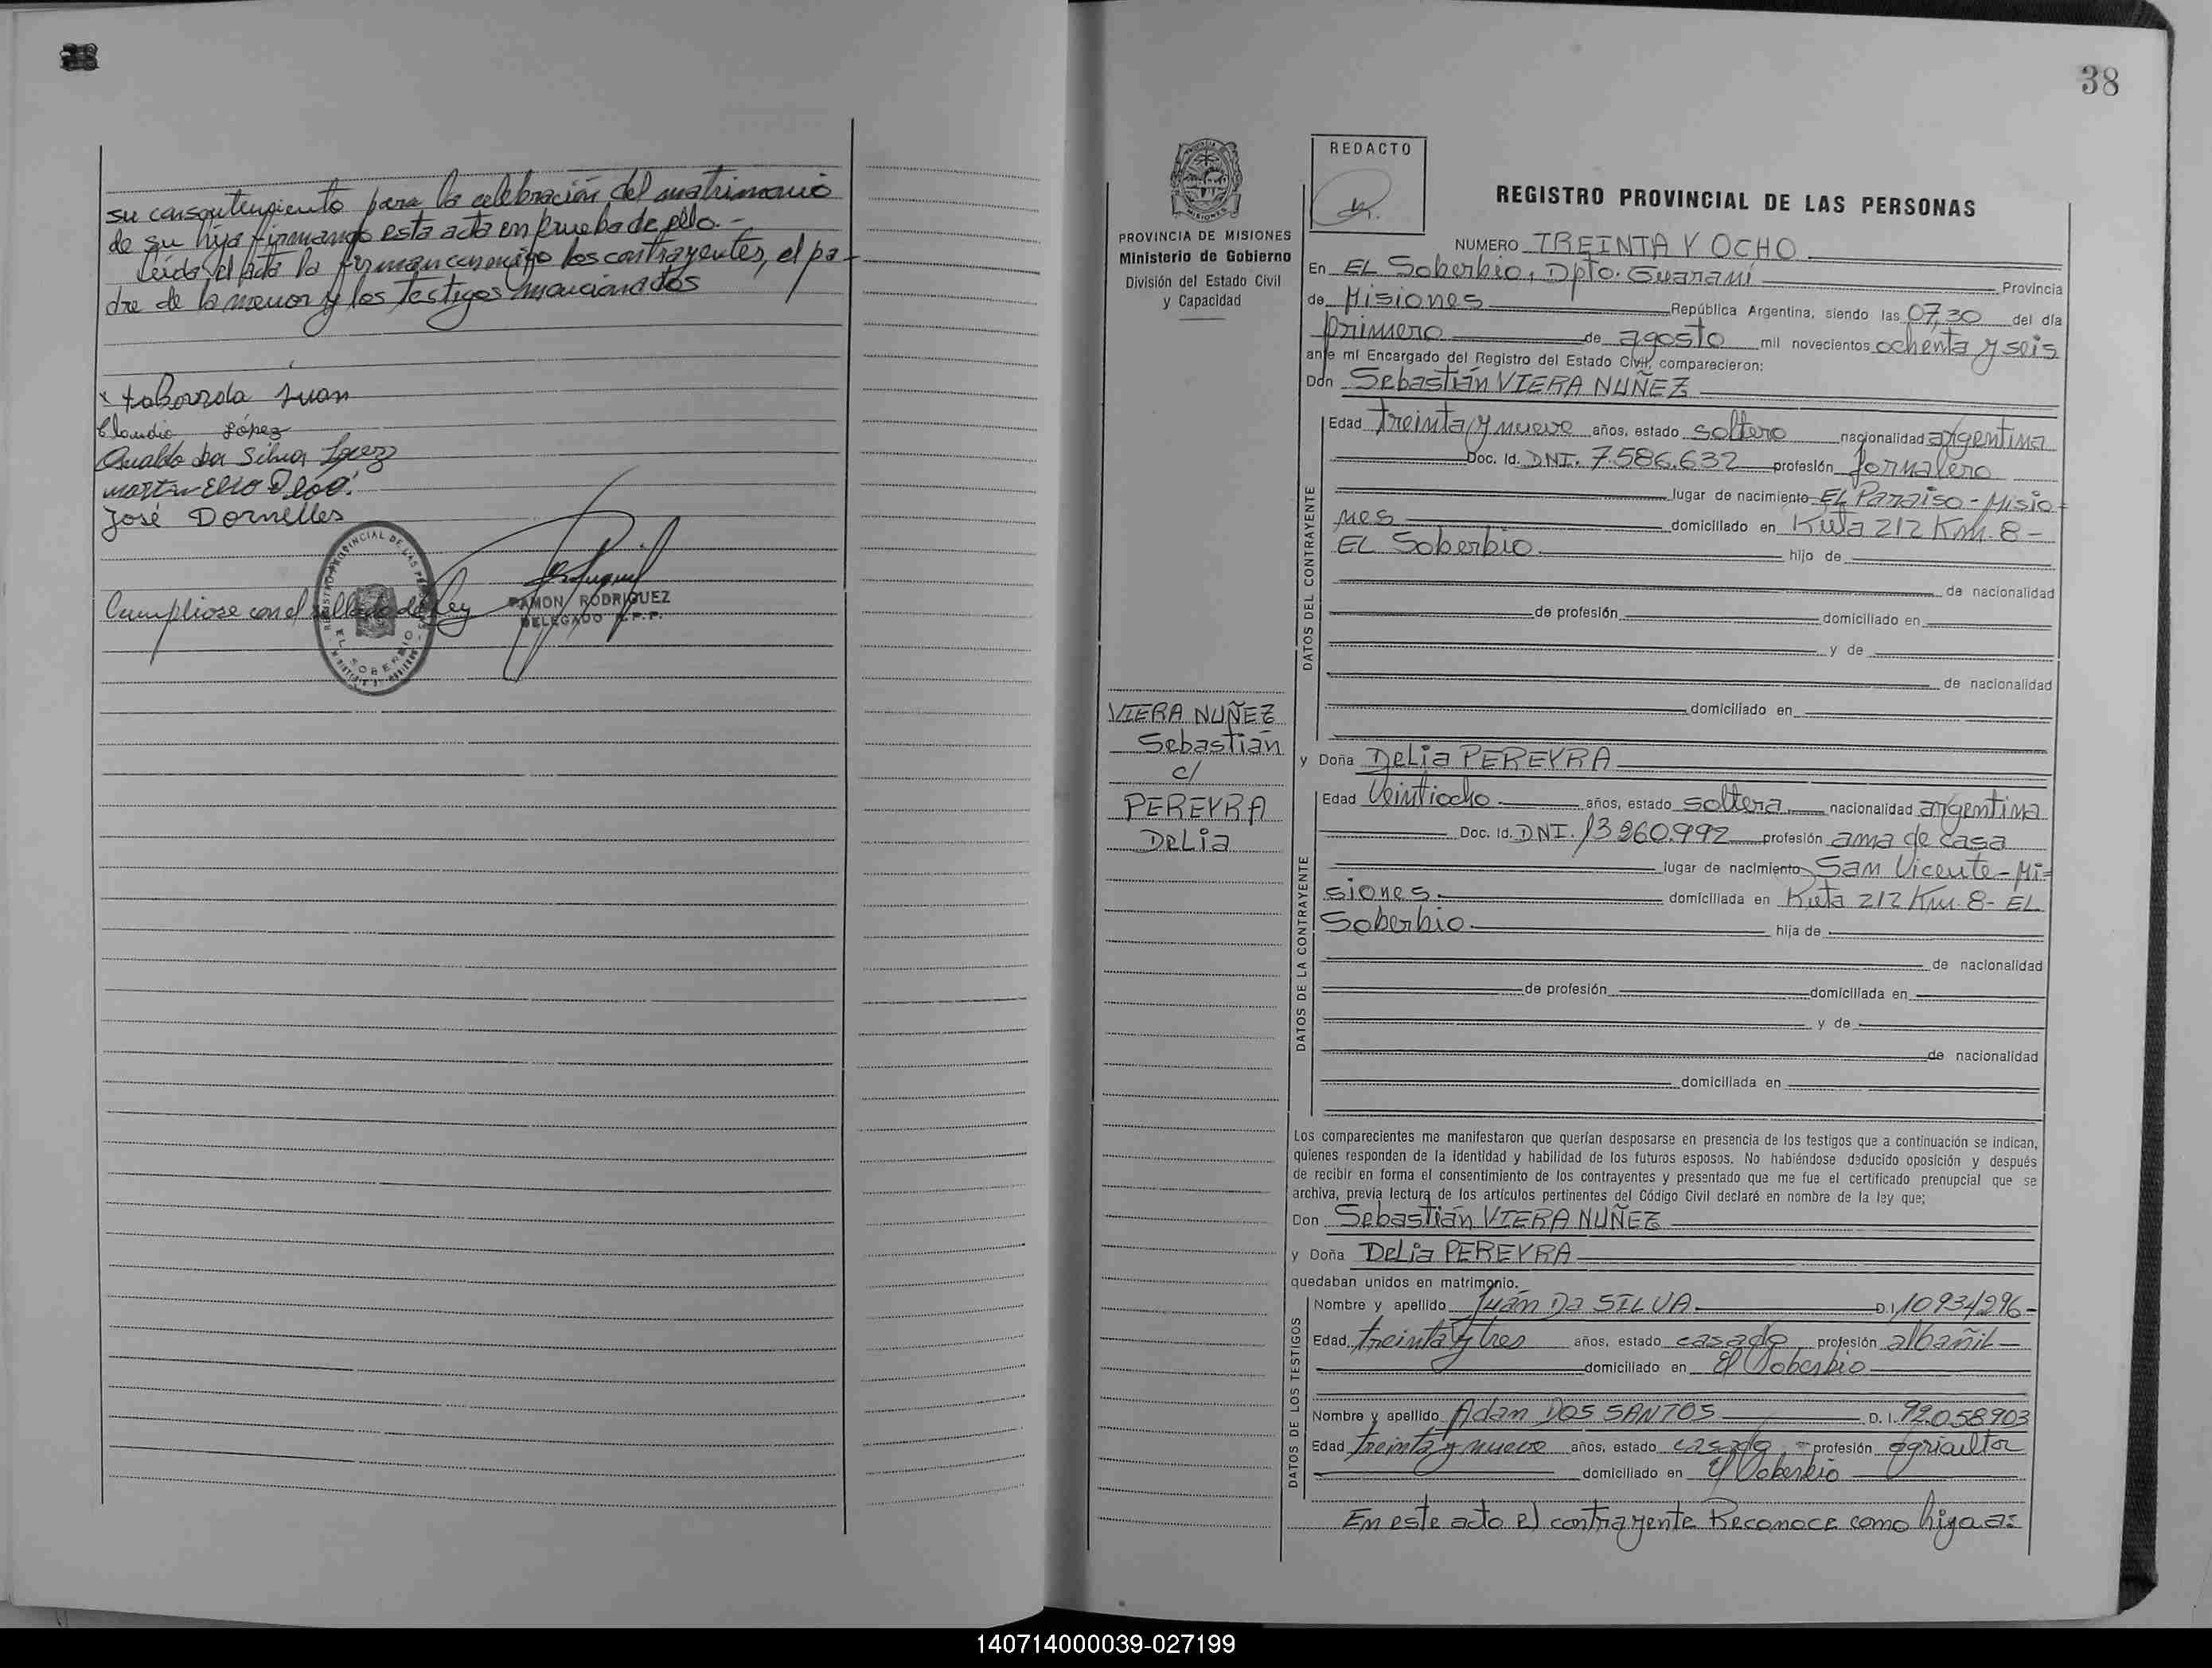 su consentimiento para la celebración del matrimonio
de su hija firmando esta acta en prueba de ello.-
Leída el acta la firman conmigo los contrayentes, el pa-
dre de la menor y los testigos mencionados
x taborrda Juan
Claudio López
da Silva
José Dornelles
Cumpliose con el sellado de Ley
RAMON RODRIGUEZ
DELEGADO R.P.P.
REGISTRO PROVINCIAL DE LAS PERSONAS
EL SOBERBIO
38
PROVINCIA DE MISIONES
Ministerio de Gobierno
División del Estado Civil
y Capacidad
VIERA NUÑEZ
Sebastián
c/
PEREYRA
Delia
REDACTO
REGISTRO PROVINCIAL DE LAS PERSONAS
NUMERO TREINTA Y OCHO
En EL Soberbio, Dpto. Guaraní Provincia
de Misiones República Argentina, siendo las 07,30 del día
primero de agosto mil novecientos ochenta y seis
ante mí Encargado del Registro del Estado Civil, comparecieron:
Don Sebastián VIERA NUÑEZ
DATOS DEL CONTRAYENTE
Edad treinta y nueve años, estado soltero nacionalidad argentina
Doc. Id. DNI. 7.586.632 profesión jornalero
lugar de nacimiento EL Paraiso - Misio-
nes domiciliado en Ruta 212 Km. 8 -
EL Soberbio hijo de
de nacionalidad
de profesión domiciliado en
y de
de nacionalidad
domiciliado en
y Doña Delia PEREYRA
DATOS DE LA CONTRAYENTE
Edad Veintiocho años, estado soltera nacionalidad argentina
Doc. Id. DNI. 13 860.992 profesión ama de casa
lugar de nacimiento San Vicente - Mi=
siones. domiciliada en Ruta 212 Km. 8 - EL
Soberbio. hija de
de nacionalidad
de profesión domiciliada en
y de
de nacionalidad
domiciliada en
Los comparecientes me manifestaron que querían desposarse en presencia de los testigos que a continuación se indican,
quienes responden de la identidad y habilidad de los futuros esposos. No habiéndose deducido oposición y después
de recibir en forma el consentimiento de los contrayentes y presentado que me fue el certificado prenupcial que se
archiva, previa lectura de los artículos pertinentes del Código Civil declaré en nombre de la ley que;
Don Sebastián VIERA NUÑEZ
y Doña Delia PEREYRA
quedaban unidos en matrimonio.
DATOS DE LOS TESTIGOS
Nombre y apellido Juán Da SILVA. D.I. 10934296-
Edad treinta y tres años, estado casado profesión albañil -
domiciliado en El Soberbio
Nombre y apellido Adan DOS SANTOS D. I. 92.058.903
Edad treinta y nueve años, estado casado - profesión agricultor
domiciliado en El Soberbio
En este acto el contrayente Reconoce como hija a:
140714000039-027199